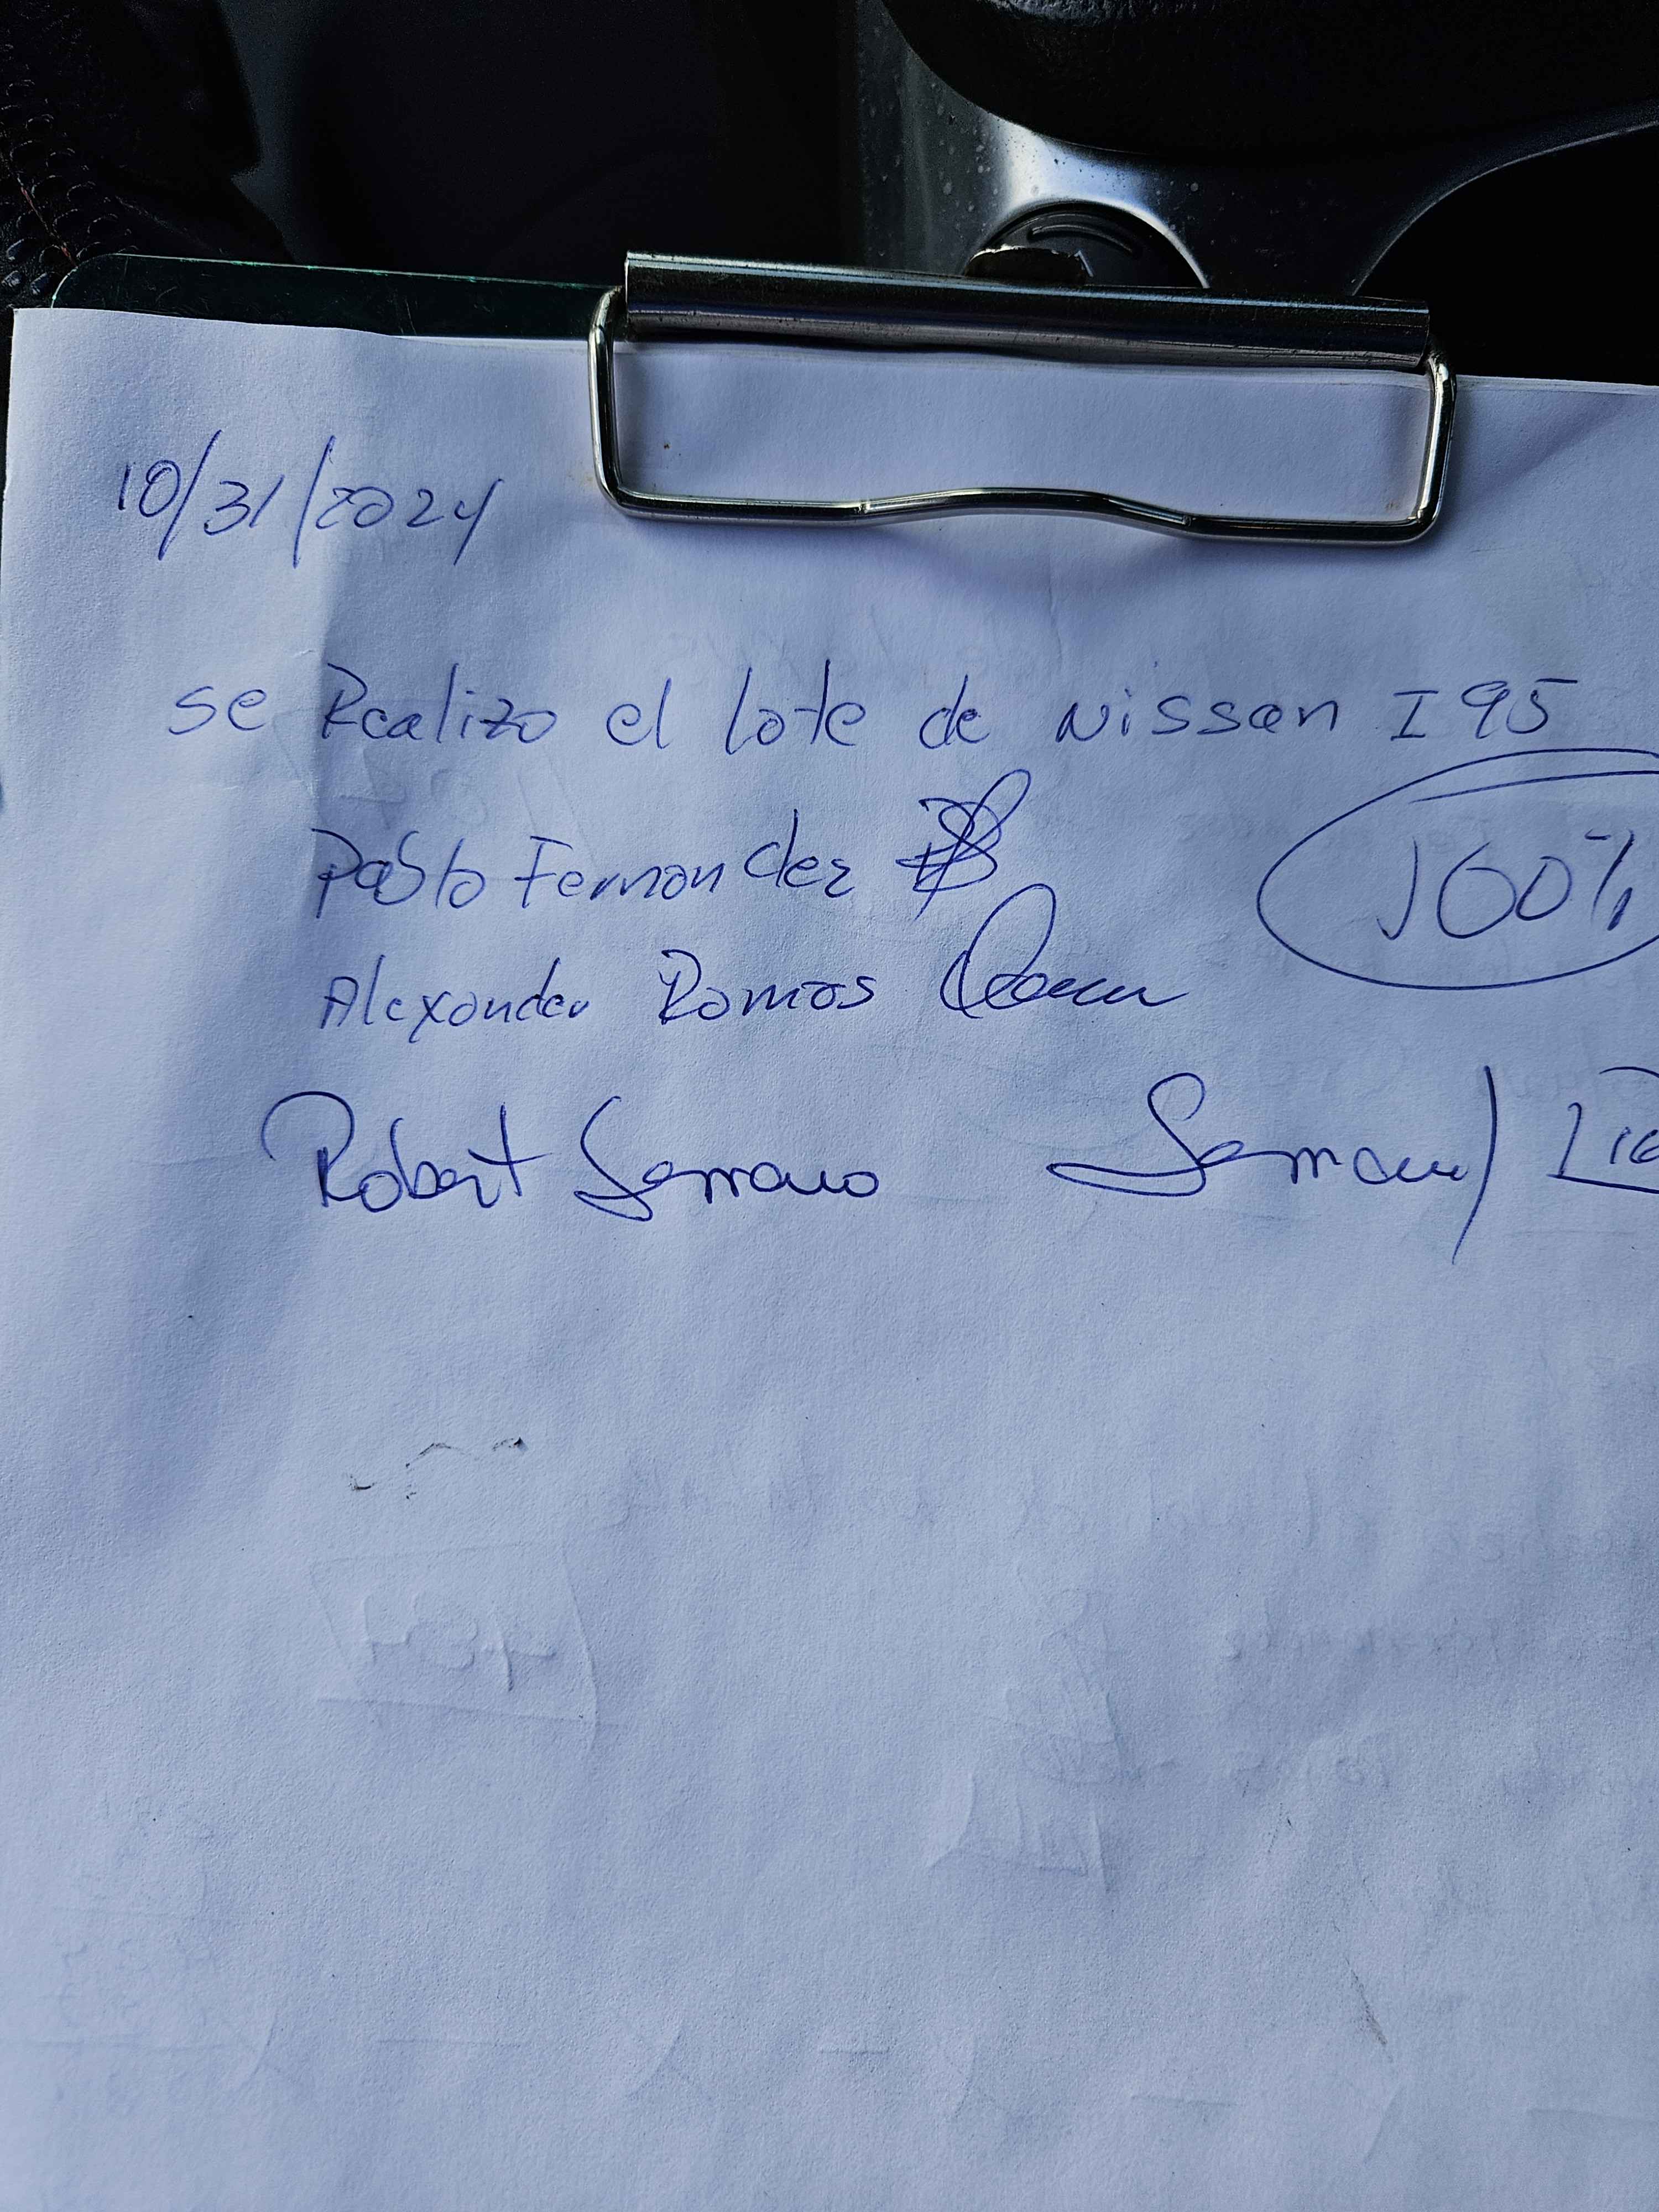 10/31/2024
se Realizo el lote de Nissan I 95
Pablo Fernandez
100%
Alexander Ramos
Robert Serrano